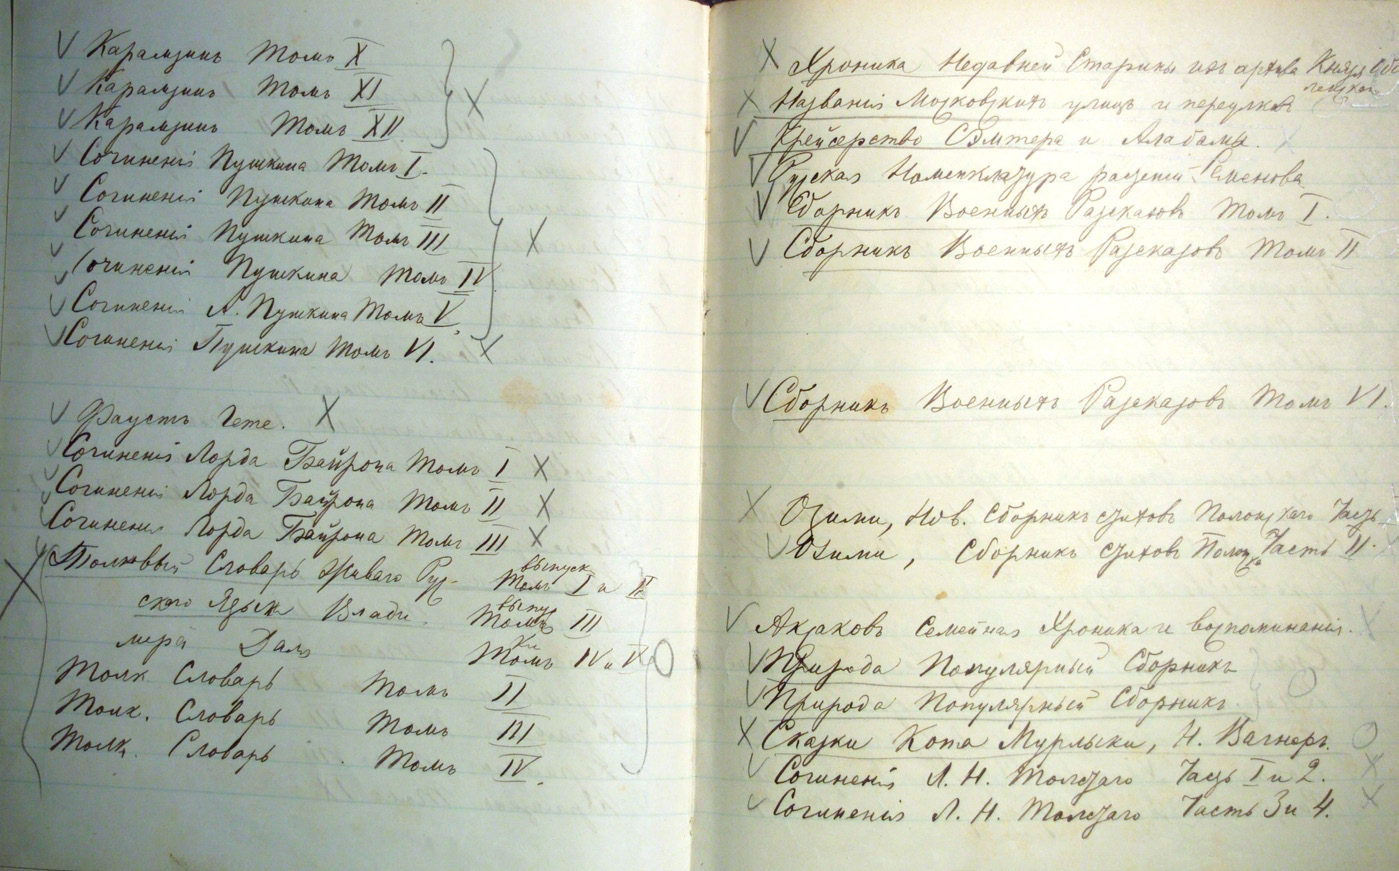 Карамзинъ Томъ X
Карамзинъ Томъ XI
Карамзинъ Томъ XII
Сочиненія Пушкина Томъ I.
Сочиненія Пушкина Томъ II
Сочиненія Пушкина Томъ III
Сочиненія Пушкина Томъ IV.
Сочиненія А. Пушкина Томъ V.
Сочиненія Пушкина Томъ VI.
Фаустъ Гете.
Сочиненія Лорда Байрона Томъ I
Сочиненія Лорда Байрона Томъ II
Сочиненія Лорда Байрона Томъ III
выпуск
Толковый Словарь Живаго Рус- Томъ I и II
выпус
скаго Языка Влади. Томъ III
мера Даля Томъ IV и V
Толк Словарь Томъ II
Толк. Словарь Томъ III
Толк. Словарь Томъ IV.
Хроника Недавней Старины изъ архива Князя Обо
ленскаго
Названія Московскихъ улицъ и переулковъ
Крейсерство Сэмтера и Алабамы.
Русская Номенклатура растеній Семенова
Сборникъ Военныхъ Разсказовъ Томъ I.
Сборникъ Военныхъ Разсказовъ Томъ II
Сборникъ Военныхъ Разсказовъ Томъ VI.
Озими, Нов. Сборникъ стиховъ Полонскаго Часть
Озими, Сборникъ стиховъ Полон. Часть II.
Аксаковъ Семейная Хроника и воспоминанія.
Природа Популярный Сборникъ
Природа Популярный Сборникъ.
Сказки Кота Мурлыки, Н. Вагнеръ.
Сочиненія Л. Н. Толстаго Часть I и 2.
Сочиненія Л. Н. Толстаго Часть 3 и 4.